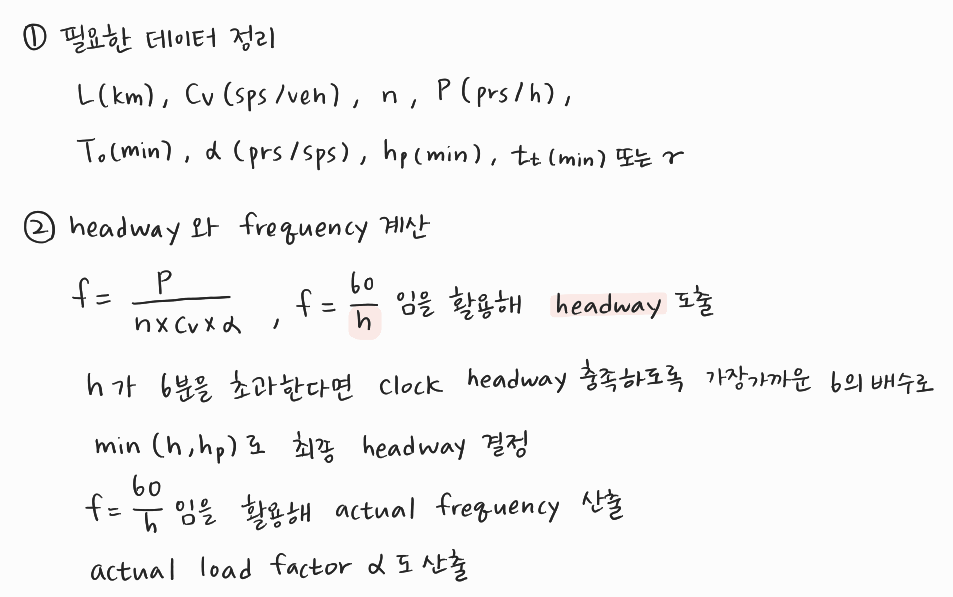 ① 필요한 데이터 정리
L(km), Cv(sps/veh), n, P(prs/h),
T₀(min), α(prs/sps), hp(min), tt(min) 또는 r
② headway와 frequency 계산
f = P / (n×Cv×α), f = 60/h 임을 활용해 headway 도출
h가 6분을 초과한다면 clock headway 충족하도록 가장가까운 6의 배수로
min (h, hp)로 최종 headway 결정
f = 60/h 임을 활용해 actual frequency 산출
actual load factor α도 산출